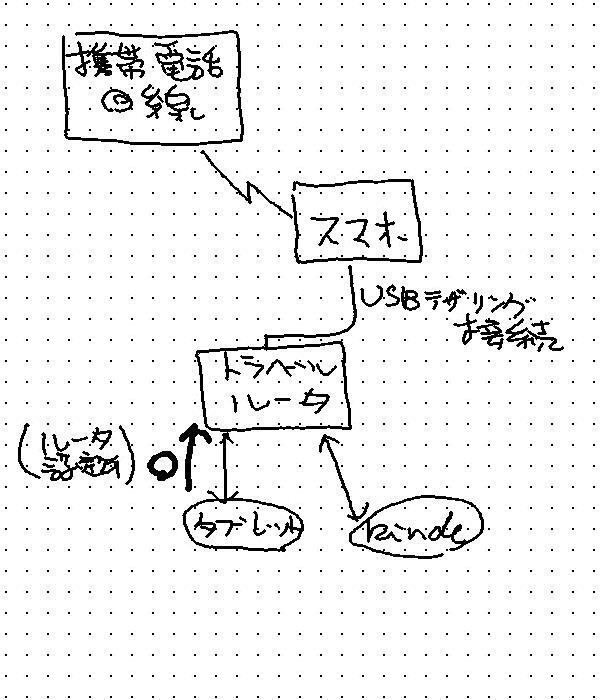 携帯電話
回線
スマホ
USBテザリング
接続
トラベル
ルータ
(ルータ
設定)
タブレット
kindle